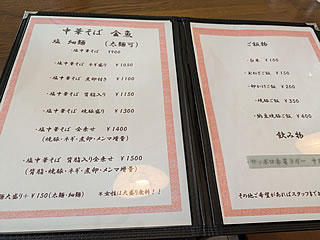 中華そば 金魚
塩 細麺 (太麺可)
・塩中華そば ¥900
・塩中華そば ネギ盛り ¥1050
・塩中華そば 煮卵付き ¥1100
・塩中華そば 背脂入り ¥1150
・塩中華そば 焼豚盛り ¥1300
・塩中華そば 全乗せ ¥1400
(焼豚・ネギ・煮卵・メンマ増量)
・塩中華そば 背脂入り全乗せ ¥1500
(背脂・焼豚・ネギ・煮卵・メンマ増量)
麺大盛り+¥150(太麺・細麺)
女性は大盛り無料!!
ご飯物
・白米 ¥100
・ネギご飯 ¥150
・卵かけご飯 ¥200
・焼豚ご飯 ¥350
・焼豚ご飯 ¥400
飲み物
その他ご希望があればスタッフま